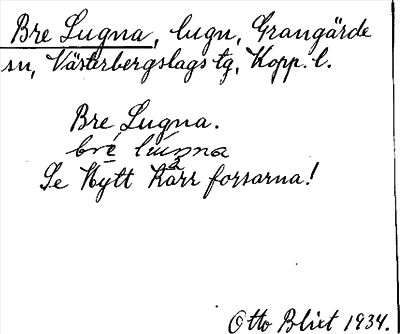 Bre Lugna, lugn, Grangärde
sn, Västerbergslags tg, Kopp. l.
Bre Lugna.
Se Nytt Kärr forsarna!
Otto Blixt 1934.